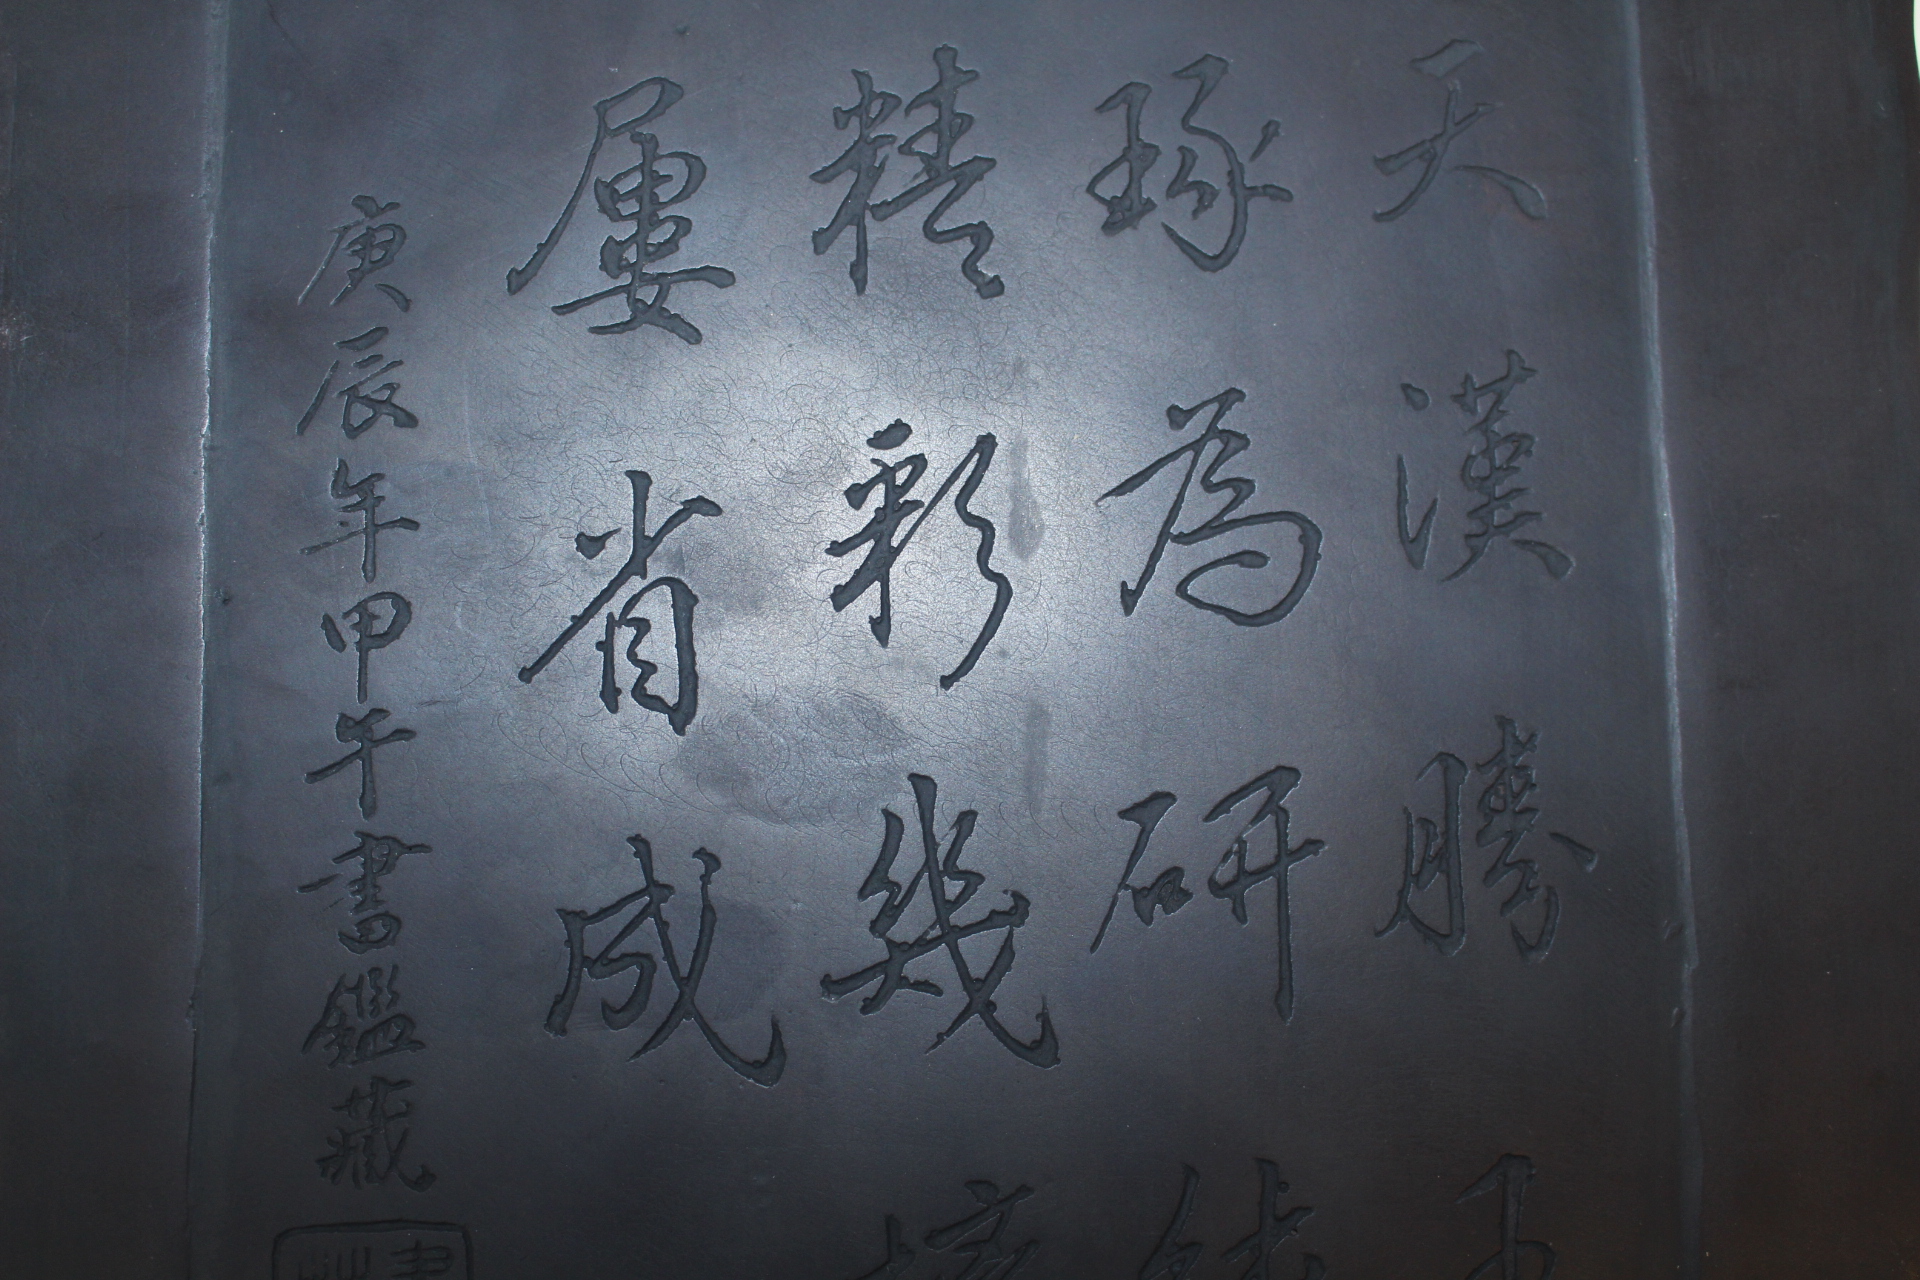 天漢勝
琢為研
精彩幾
屢省成
庚辰年甲午書鑑藏